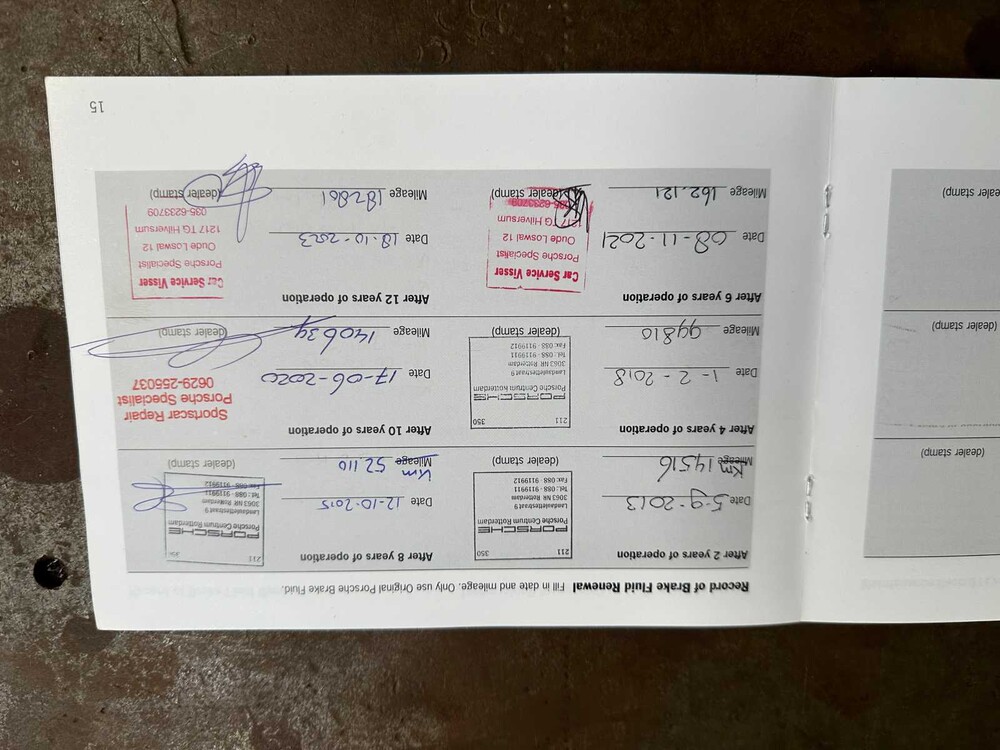 Record of Brake Fluid Renewal Fill in date and mileage. Only use Original Porsche Brake Fluid.
After 2 years of operation
Date 5-9-2013
Mileage Km 14516
211 350
PORSCHE
Porsche Centrum Rotterdam
Landauletstraat 9
3063 NR Rotterdam
Tel. 088 - 9119911
Fax. 088 - 9119912
(dealer stamp)
After 8 years of operation
Date 12-10-2015
Mileage Km 52.110
211 350
PORSCHE
Porsche Centrum Rotterdam
Landauletstraat 9
3063 NR Rotterdam
Tel. 088 - 9119911
Fax. 088 - 9119912
(dealer stamp)
After 4 years of operation
Date 1-2-2018
Mileage 99810
211 350
PORSCHE
Porsche Centrum Rotterdam
Landauletstraat 9
3063 NR Rotterdam
Tel. 088 - 9119911
Fax. 088 - 9119912
(dealer stamp)
After 10 years of operation
Date 17-06-2020
Mileage 140634
Sportscar Repair
Porsche Specialist
0629-255037
(dealer stamp)
After 6 years of operation
Date 08-11-2021
Mileage 162.121
Car Service Visser
Porsche Specialist
Oude Loswal 12
1217 TG Hilversum
035-6233709
(dealer stamp)
After 12 years of operation
Date 18-10-2023
Mileage 182861
Car Service Visser
Porsche Specialist
Oude Loswal 12
1217 TG Hilversum
035-6233709
(dealer stamp)
15
(dealer stamp)
dealer stamp)
ealer stamp)